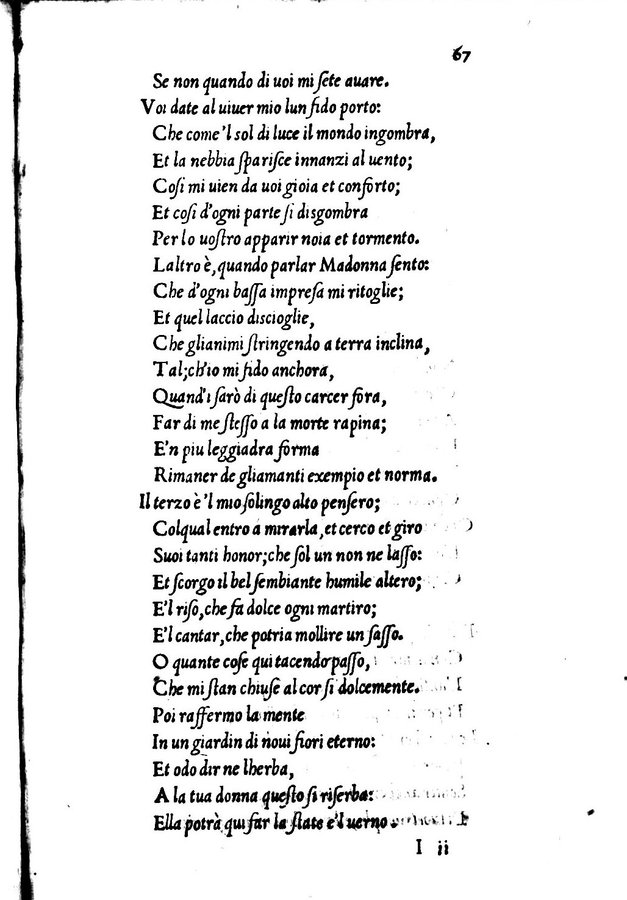 67
Se non quando di uoi mi ſete auare.
Voi date al uiuer mio lun fido porto:
Che come'l sol di luce il mondo ingombra,
Et la nebbia ſpariſce innanzi al uento;
Coſi mi uien da uoi gioia et conforto;
Et coſi d'ogni parte ſi diſgombra
Per lo uoſtro apparir noia et tormento.
Laltro è, quando parlar Madonna ſento:
Che d'ogni baſſa impreſa mi ritoglie;
Et quel laccio diſcioglie,
Che glianimi ſtringendo a terra inclina,
Tal; ch'io mi fido anchora,
Quand'i ſarò di queſto carcer fora,
Far di me ſteſſo a la morte rapina;
E'n piu leggiadra forma
Rimaner de gliamanti exempio et norma.
Il terzo è 'l mio ſolingo alto penſero;
Colqual entro a mirarla, et cerco et giro
Suoi tanti honor; che ſol un non ne laſſo:
Et ſcorgo il bel ſembiante humile altero;
E'l riſo, che fa dolce ogni martiro;
E'l cantar, che potria mollire un ſaſſo.
O quante coſe qui tacendo paſſo,
Che mi ſtan chiuſe al cor ſi dolcemente.
Poi raffermo la mente
In un giardin di noui fiori eterno:
Et odo dir ne lherba,
A la tua donna queſto ſi riſerba:
Ella potrà qui far la ſtate e'l uerno.
I ii